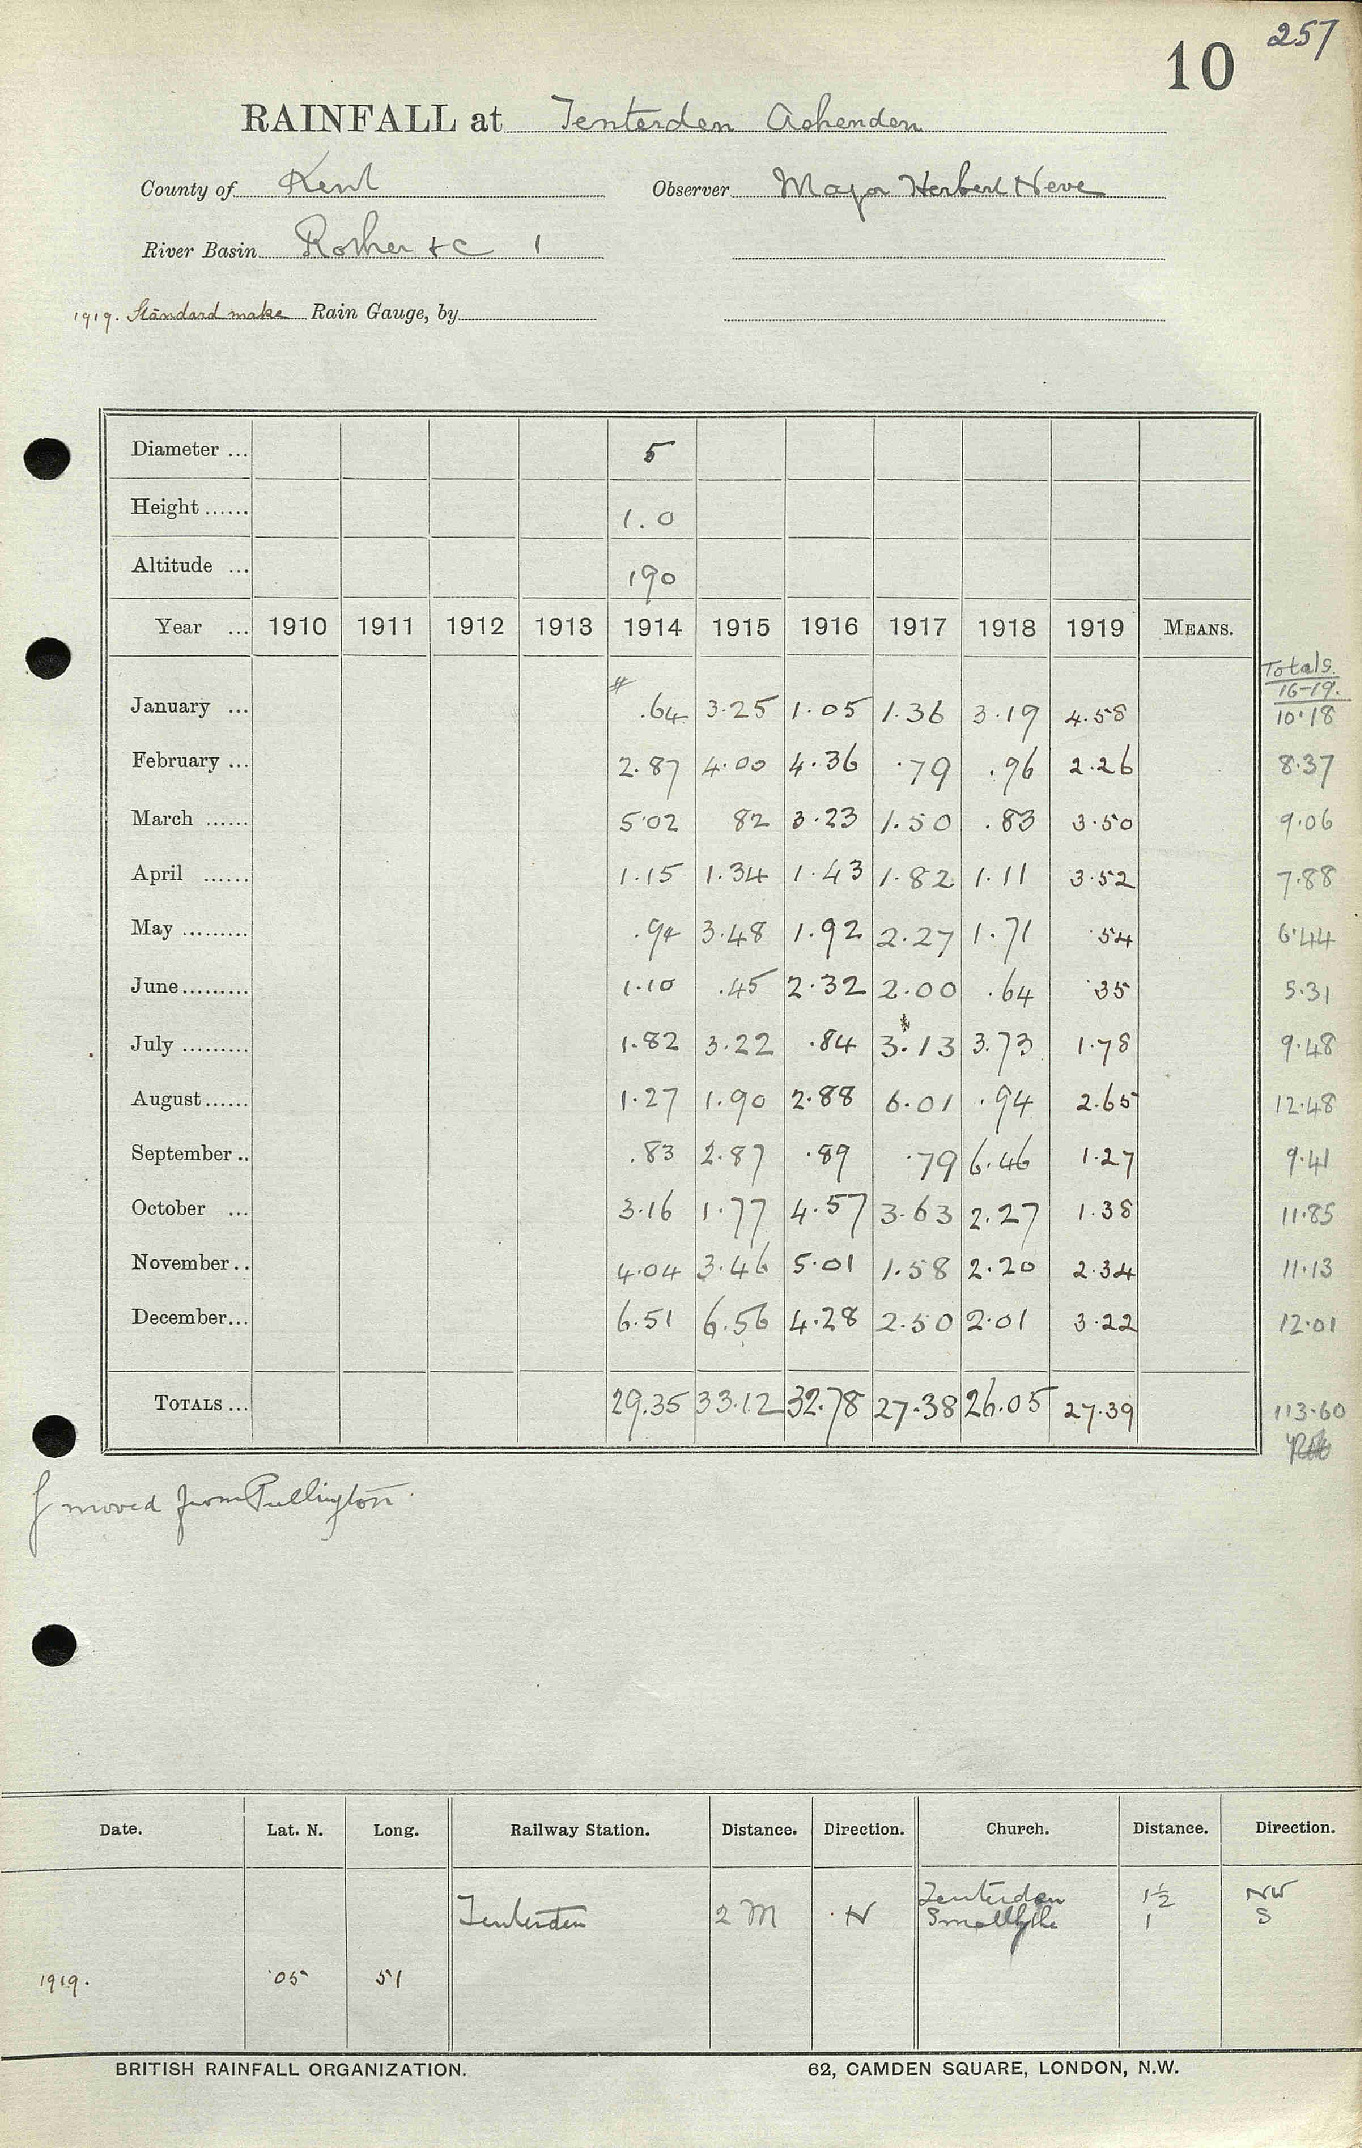 257
10
RAINFALL at Tenterden Ashenden
County of Kent Observer Major Herbert Neve
River Basin Rother &c 1
1919. Standard make Rain Gauge, by
Diameter ... 5
Height ...... 1.0
Altitude ... 190
Year ... 1910 1911 1912 1913 1914 1915 1916 1917 1918 1919 MEANS.
Totals.
16-19.
January ... # .64 3.25 1.05 1.36 3.19 4.58 10.18
February ... 2.87 4.00 4.36 .79 .96 2.26 8.37
March ...... 5.02 82 3.23 1.50 .83 3.50 9.06
April ...... 1.15 1.34 1.43 1.82 1.11 3.52 7.88
May ......... .94 3.48 1.92 2.27 1.71 .54 6.44
June......... 1.10 .45 2.32 2.00 .64 .35 5.31
July ......... 1.82 3.22 .84 3.13 3.73 1.78 9.48
August...... 1.27 1.90 2.88 6.01 .94 2.65 12.48
September .. .83 2.87 .89 .79 6.46 1.27 9.41
October ... 3.16 1.77 4.57 3.63 2.27 1.38 11.85
November .. 4.04 3.46 5.01 1.58 2.20 2.34 11.13
December... 6.51 6.56 4.28 2.50 2.01 3.22 12.01
TOTALS ... 29.35 33.12 32.78 27.38 26.05 27.39 113.60
moved from Pullington.
Date. Lat. N. Long. Railway Station. Distance. Direction. Church. Distance. Direction.
Tenterden 2 M N Tenterden 1½ NW
Smallhythe 1 S
1919. .05 51
BRITISH RAINFALL ORGANIZATION. 62, CAMDEN SQUARE, LONDON, N.W.